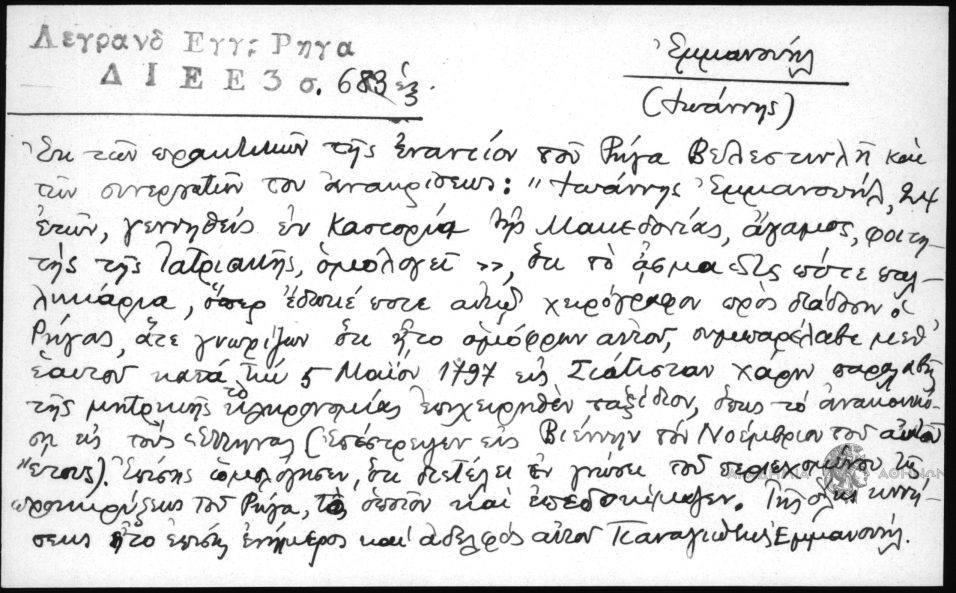 Λεγρανδ Εγγρ Ρηγα
Δ Ι Ε Ε 3 σ. 683 ἑξ.
Ἐμμανουήλ
(Ἰωάννης)
Ἐκ τῶν πρακτικῶν τῆς ἐναντίον τοῦ Ρήγα Βελεστινλῆ καὶ
τῶν συνεργατῶν του ἀνακρίσεως: "Ἰωάννης Ἐμμανουήλ, 24
ἐτῶν, γεννηθείς ἐν Καστοριᾳ τῆς Μακεδονίας, ἄγαμος, φοιτη-
τής τῆς Ἰατρικῆς, ὁμολογεῖ», ὅτι τὸ ᾆσμα «Ὣς πότε παλ-
ληκάρια, ὅπερ ἔδωκέ ποτε αὐτῷ χειρόγραφον πρὸς διάδοσιν ὁ
Ρήγας, ἅτε γνωρίζων ὅτι ἦτο ὁμόφρων αὐτοῦ, συμπαρέλαβε μεθ'
ἑαυτοῦ κατά τὴν 5 Μαΐου 1797 εἰς Σιάτισταν χάριν παραλαβῆς
τῆς μητρικῆς κληρονομίας ἐπιχειρηθὲν ταξίδιον, ὅπως τὸ ἀνακοινώ-
σῃ εἰς τοὺς Ἕλληνας (Ἐπέστρεψεν εἰς Βιέννην τὸν Νοέμβριον τοῦ αὐτοῦ
ἔτους). Ἐπίσης ὡμολόγησεν, ὅτι διετέλει ἐν γνώσει τοῦ περιεχομένου τῆς
προκηρύξεως τοῦ Ρήγα, τὸ ὁποῖον καὶ ἐπεδοκίμαζεν. Τῆς ὅλης κινή-
σεως ἦτο ἐπίσης ἐνήμερος καὶ ἀδελφός αὐτοῦ Παναγιώτης Ἐμμανουήλ.
ΑΘΗΝΩΝ